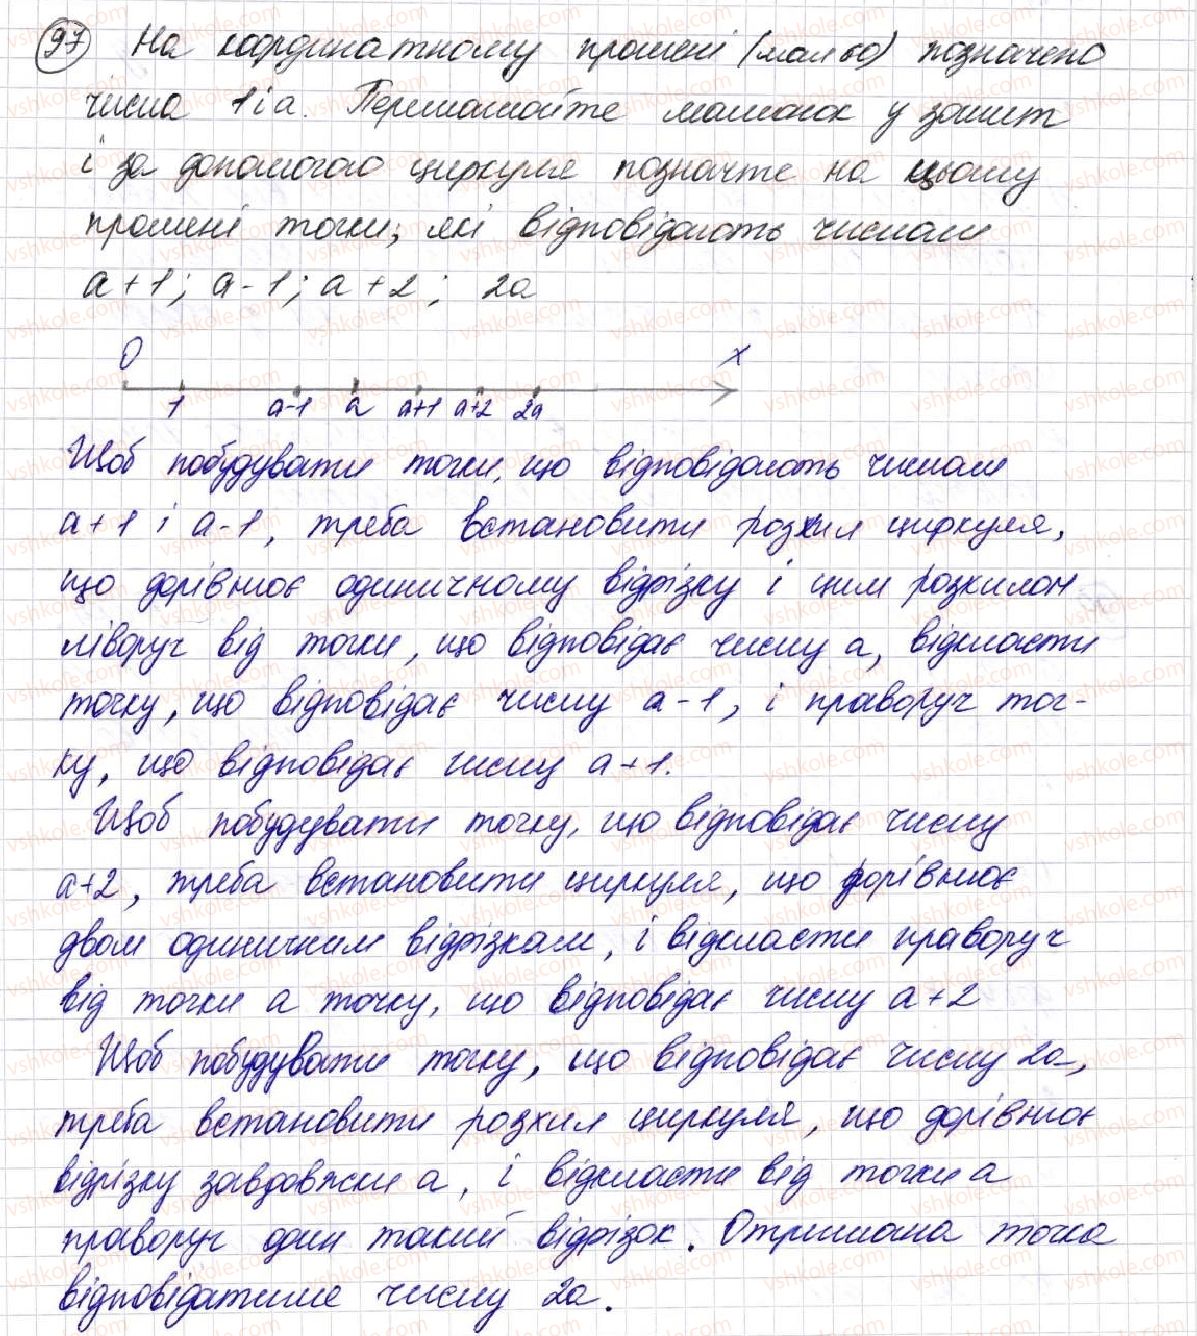 97 На координатному промені (мал 60) позначено
числа 1 і а. Перемалюйте малюнок у зошит
і за допомогою циркуля позначте на цьому
промені точки, які відповідають числам
а + 1; а - 1; а + 2; 2а
0 х
1 а-1 а а+1 а+2 2а
Щоб побудувати точки, що відповідають числам
а+1 і а-1, треба встановити розхил циркуля,
що дорівнює одиничному відрізку і цим розхилом
ліворуч від точки, що відповідає числу а, відкласти
точку, що відповідає числу а-1, і праворуч точ-
ку, що відповідає числу а+1.
Щоб побудувати точку, що відповідає числу
а+2, треба встановити циркуля, що дорівнює
двом одиничним відрізкам, і відкласти праворуч
від точки а точку, що відповідає числу а+2
Щоб побудувати точку, що відповідає числу 2а,
треба встановити розхил циркуля, що дорівнює
відрізку завдовжки а, і відкласти від точки а
праворуч один такий відрізок. Отримана точка
відповідатиме числу 2а.
vshkole.com